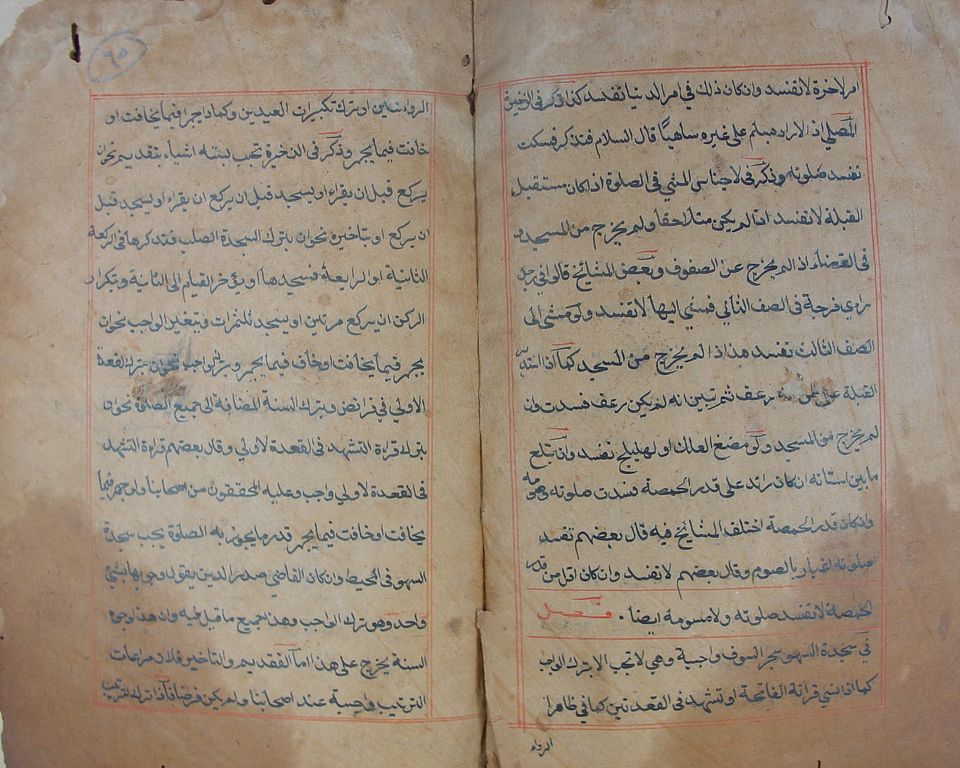 امر لاخرة لا تفسد وان كان ذلك في امر الدنيا تفسد كذا وذكر في الذخيرة
المصلي اذا اراد يسلم على غيره ساهيا قال السلام فتذكر فسكت
تفسد صلوته وذكر في لاجناس المشي في الصلوة اذا كان مستقبل
القبلة لا تفسد اذا لم يكن متلاحقا ولم يخرج من المسجد و
في الفضاء اذا لم يخرج عن الصفوف وبعض المشائخ قالوا في رجل
راى فرجة في الصف الثاني فمشى اليها لا تفسد ولو مشى الى
الصف الثالث تفسد هذا اذا لم يخرج من المسجد كما اذا استدبر
القبلة رعف ثم تبين انه لم يكن رعف فسدت وان
لم يخرج من المسجد ولو مضغ العلك او لهليلج تفسد وان تبلع
ما بين اسنانه ان كان زائد على قدر الحمصة فسدت صلوته وصومه
وان كان قدر الحمصة اختلف المشائخ فيه قال بعضهم تفسد
صلوته اعتبار بالصوم وقال بعضهم لا تفسد وان كان اقل من قدر
الحمصة لا تفسد صلوته ولا صومه ايضا . فصل
في سجدة السهو سجود السهو واجبة وهي لا تجب الا بترك الواجب
كما اذا نسي قرائة الفاتحة او تشهد في القعدتين كما في ظاهر ا
الرواء
٦٥
الرواءيتين او ترك تكبيرات العيدين وكما اذا جهر فيما يخافت او
خافت فيما يجهر وذكر في الذخيرة تجب بستة اشياء بتقديم نحو ان
يركع قبل ان يقراء او يسجد قبل ان يركع ان يقراء او يسجد قبل
ان يركع او بتاخيره نحو ان يترك السجدة الصلب فتذكرها في الركعة
الثانية او الرابعة فسجدها او يؤخر القيام الى الثانية وبتكرار
الركن ان يركع مرتين او يسجد ثلث مرات وبتغير الواجب نحو ان
يجهر فيما يخافت او خافت فيما يجهر وبترك الواجب نحو ان يترك القعدة
الاولى في فرائض وبترك السنة المضافة الى جميع الصلوة نحو ان
يترك قراءة التشهد في القعدة لاولى وقال بعضهم قراءة التشهد
في القعدة لاولى واجب وعليه المحققون من اصحابنا ولو جهر فيما
يخافت او خافت فيما يجهر قدر ما يجوز به الصلوة يجب سجدة
السهو في المحيط وان كان القاضي صدر الدين يقول وجوبها بشئ
واحد وهو ترك الواجب وهذا اجمع ما قيل فيه وان هذا لوجوه
السنة يخرج على هذا اما التقديم والتاخير فلان مراعات
الترتيب واجبة عند اصحابنا ولم يكن فرضا فاذا ترك الترتيب